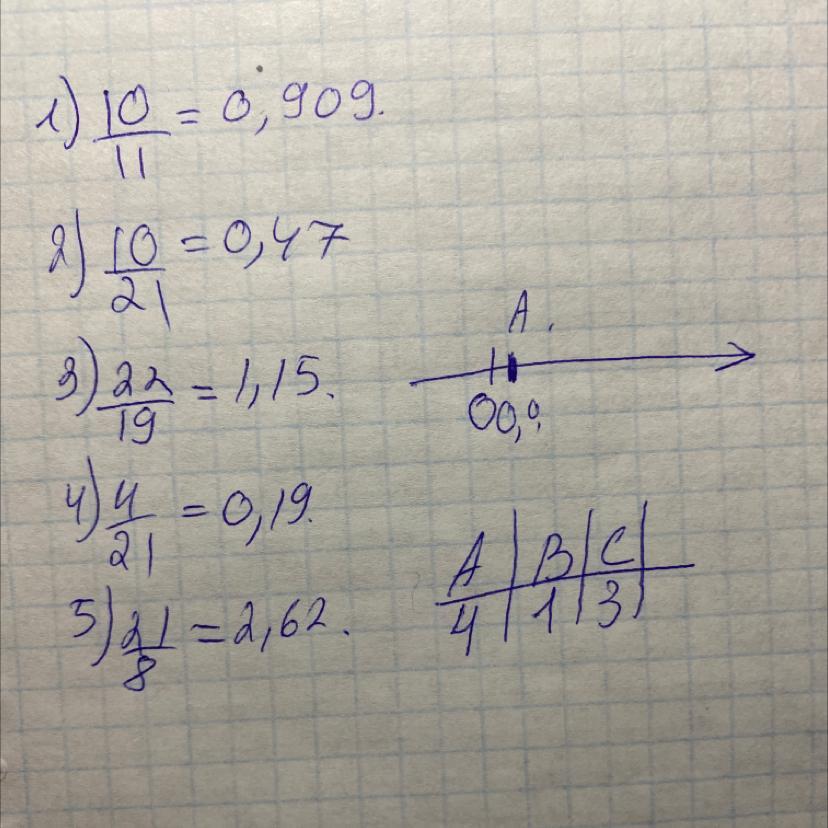 1) 10/11 = 0,909.
2) 10/21 = 0,47
A.
3) 22/19 = 1,15.
0
4) 4/21 = 0,19.
A | B | C |
4 | 1 | 3 |
5) 21/8 = 2,62.